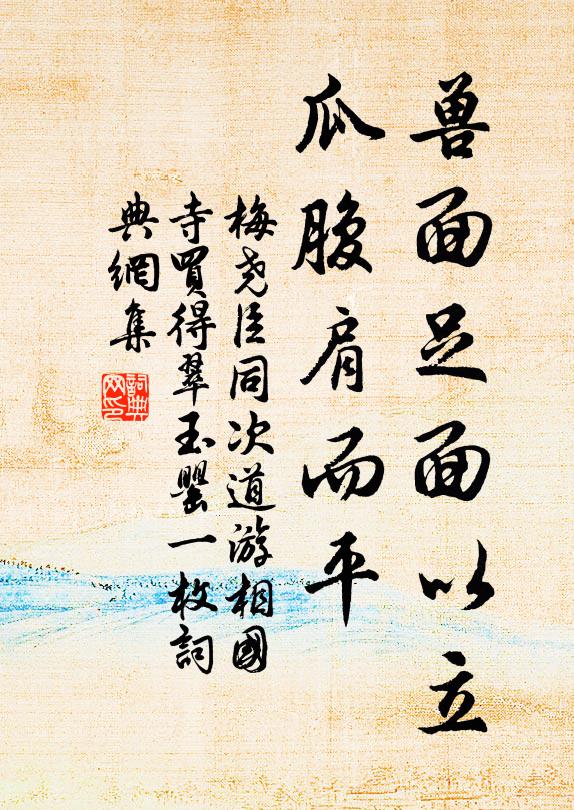 兽面足面以立
瓜腹肩而平
梅尧臣同次道游相國
寺買得翠玉罌一枚詞
典網集
詞典
网印